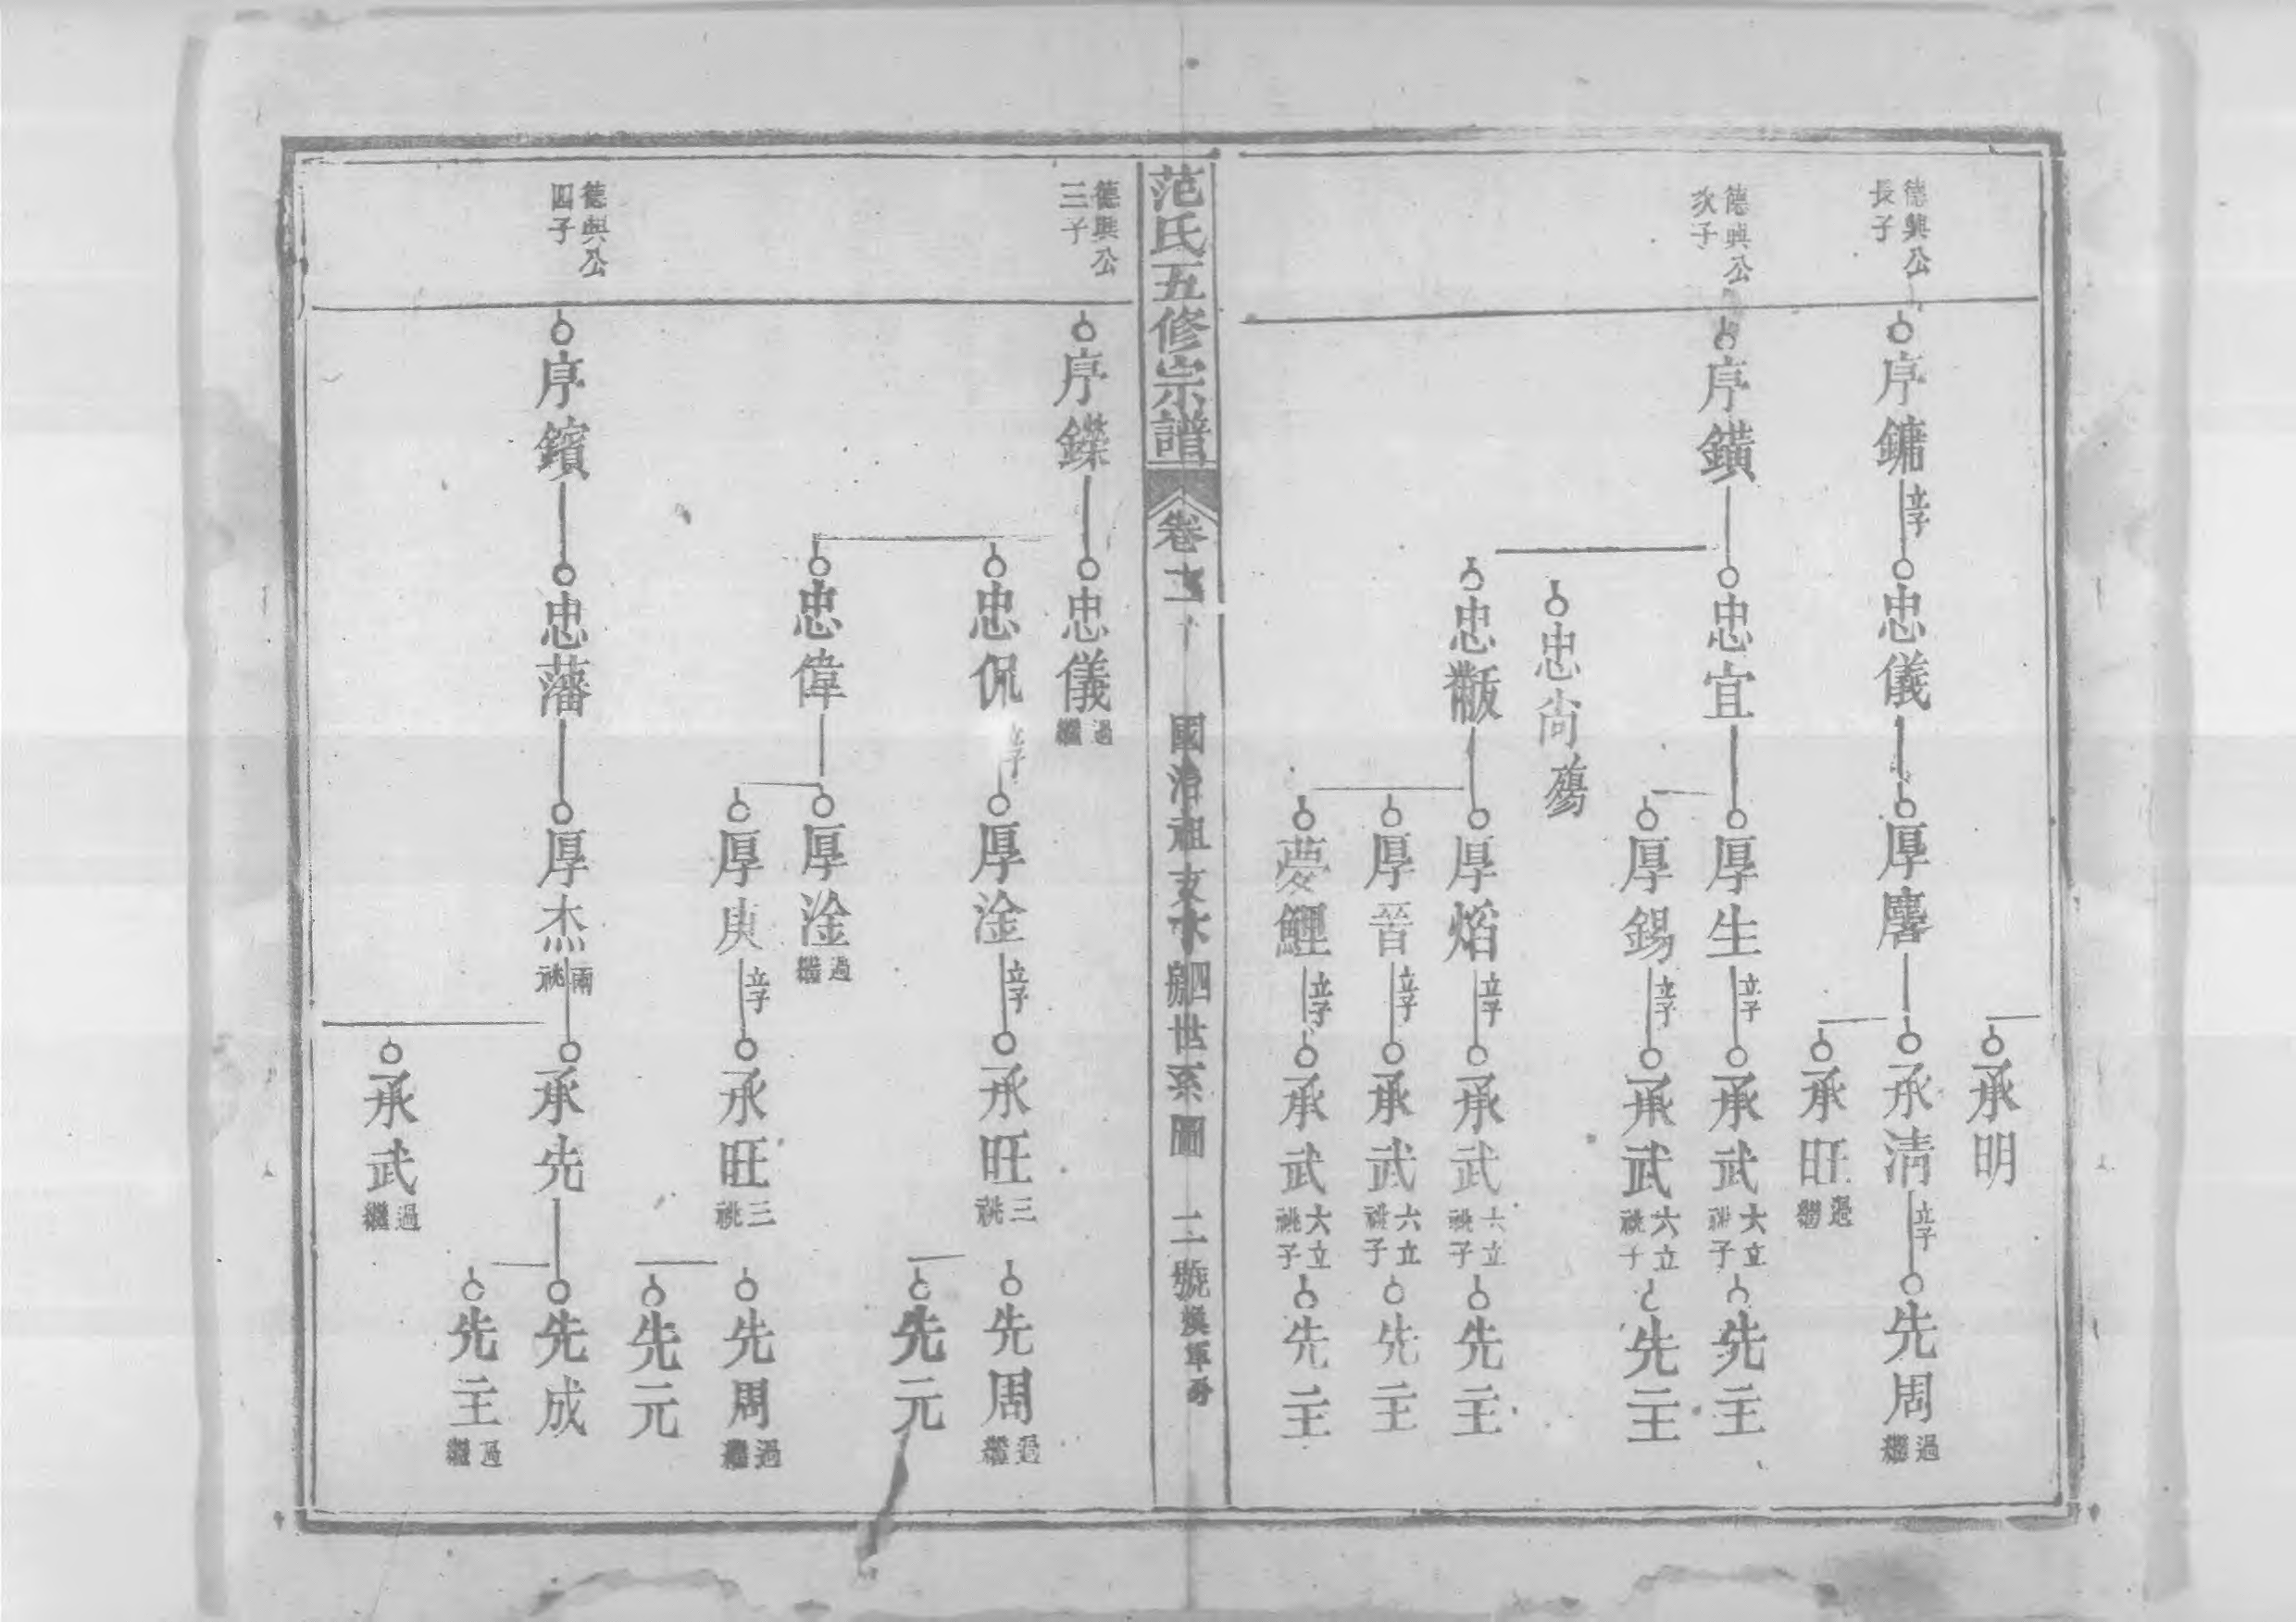 德興公
長子
序鏞
立子
忠儀
厚麐
承明
承清
立子
先周
過繼
承旺
過繼
德興公
次子
序鐄
忠宜
厚生
立子
承武
六祧
立子
先主
厚錫
立子
承武
六祧
立子
先主
忠尚
殤
忠黻
厚焰
立子
承武
六祧
立子
先主
厚晉
立子
承武
六祧
立子
先主
夢鯉
立子
承武
六祧
立子
先主
范氏五修宗譜
卷
國治祖支 四世系圖 二號
德興公
三子
序鑅
忠儀
過繼
忠侃
立子
厚淦
立子
承旺
三祧
先周
過繼
先元
忠偉
厚淦
過繼
厚庚
立子
承旺
三祧
先周
過繼
先元
德興公
四子
序鑌
忠藩
厚杰
兩祧
承先
先成
先主
過繼
承武
過繼